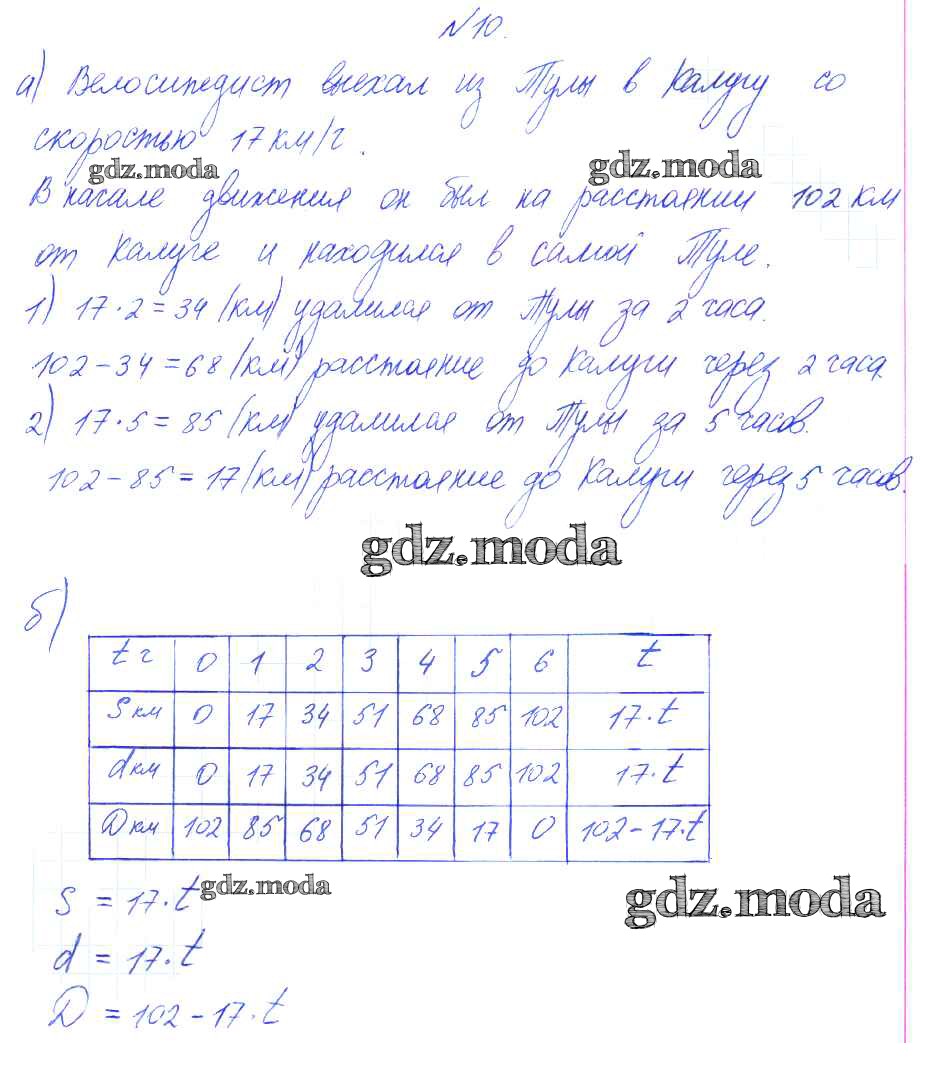 №10.
а) Велосипедист выехал из Тулы в Калугу со
скоростью 17 км/ч.
gdz.moda gdz.moda
В начале движения он был на расстоянии 102 км
от Калуге и находился в самой Туле.
1) 17·2=34 (км) удалился от Тулы за 2 часа.
102-34=68 (км) расстояние до Калуги через 2 часа.
2) 17·5=85 (км) удалился от Тулы за 5 часов.
102-85=17 (км) расстояние до Калуги через 5 часов.
gdz.moda
б)
t ч 0 1 2 3 4 5 6 t
S км 0 17 34 51 68 85 102 17·t
d км 0 17 34 51 68 85 102 17·t
D км 102 85 68 51 34 17 0 102-17·t
gdz.moda gdz.moda
S = 17·t
d = 17·t
D = 102-17·t